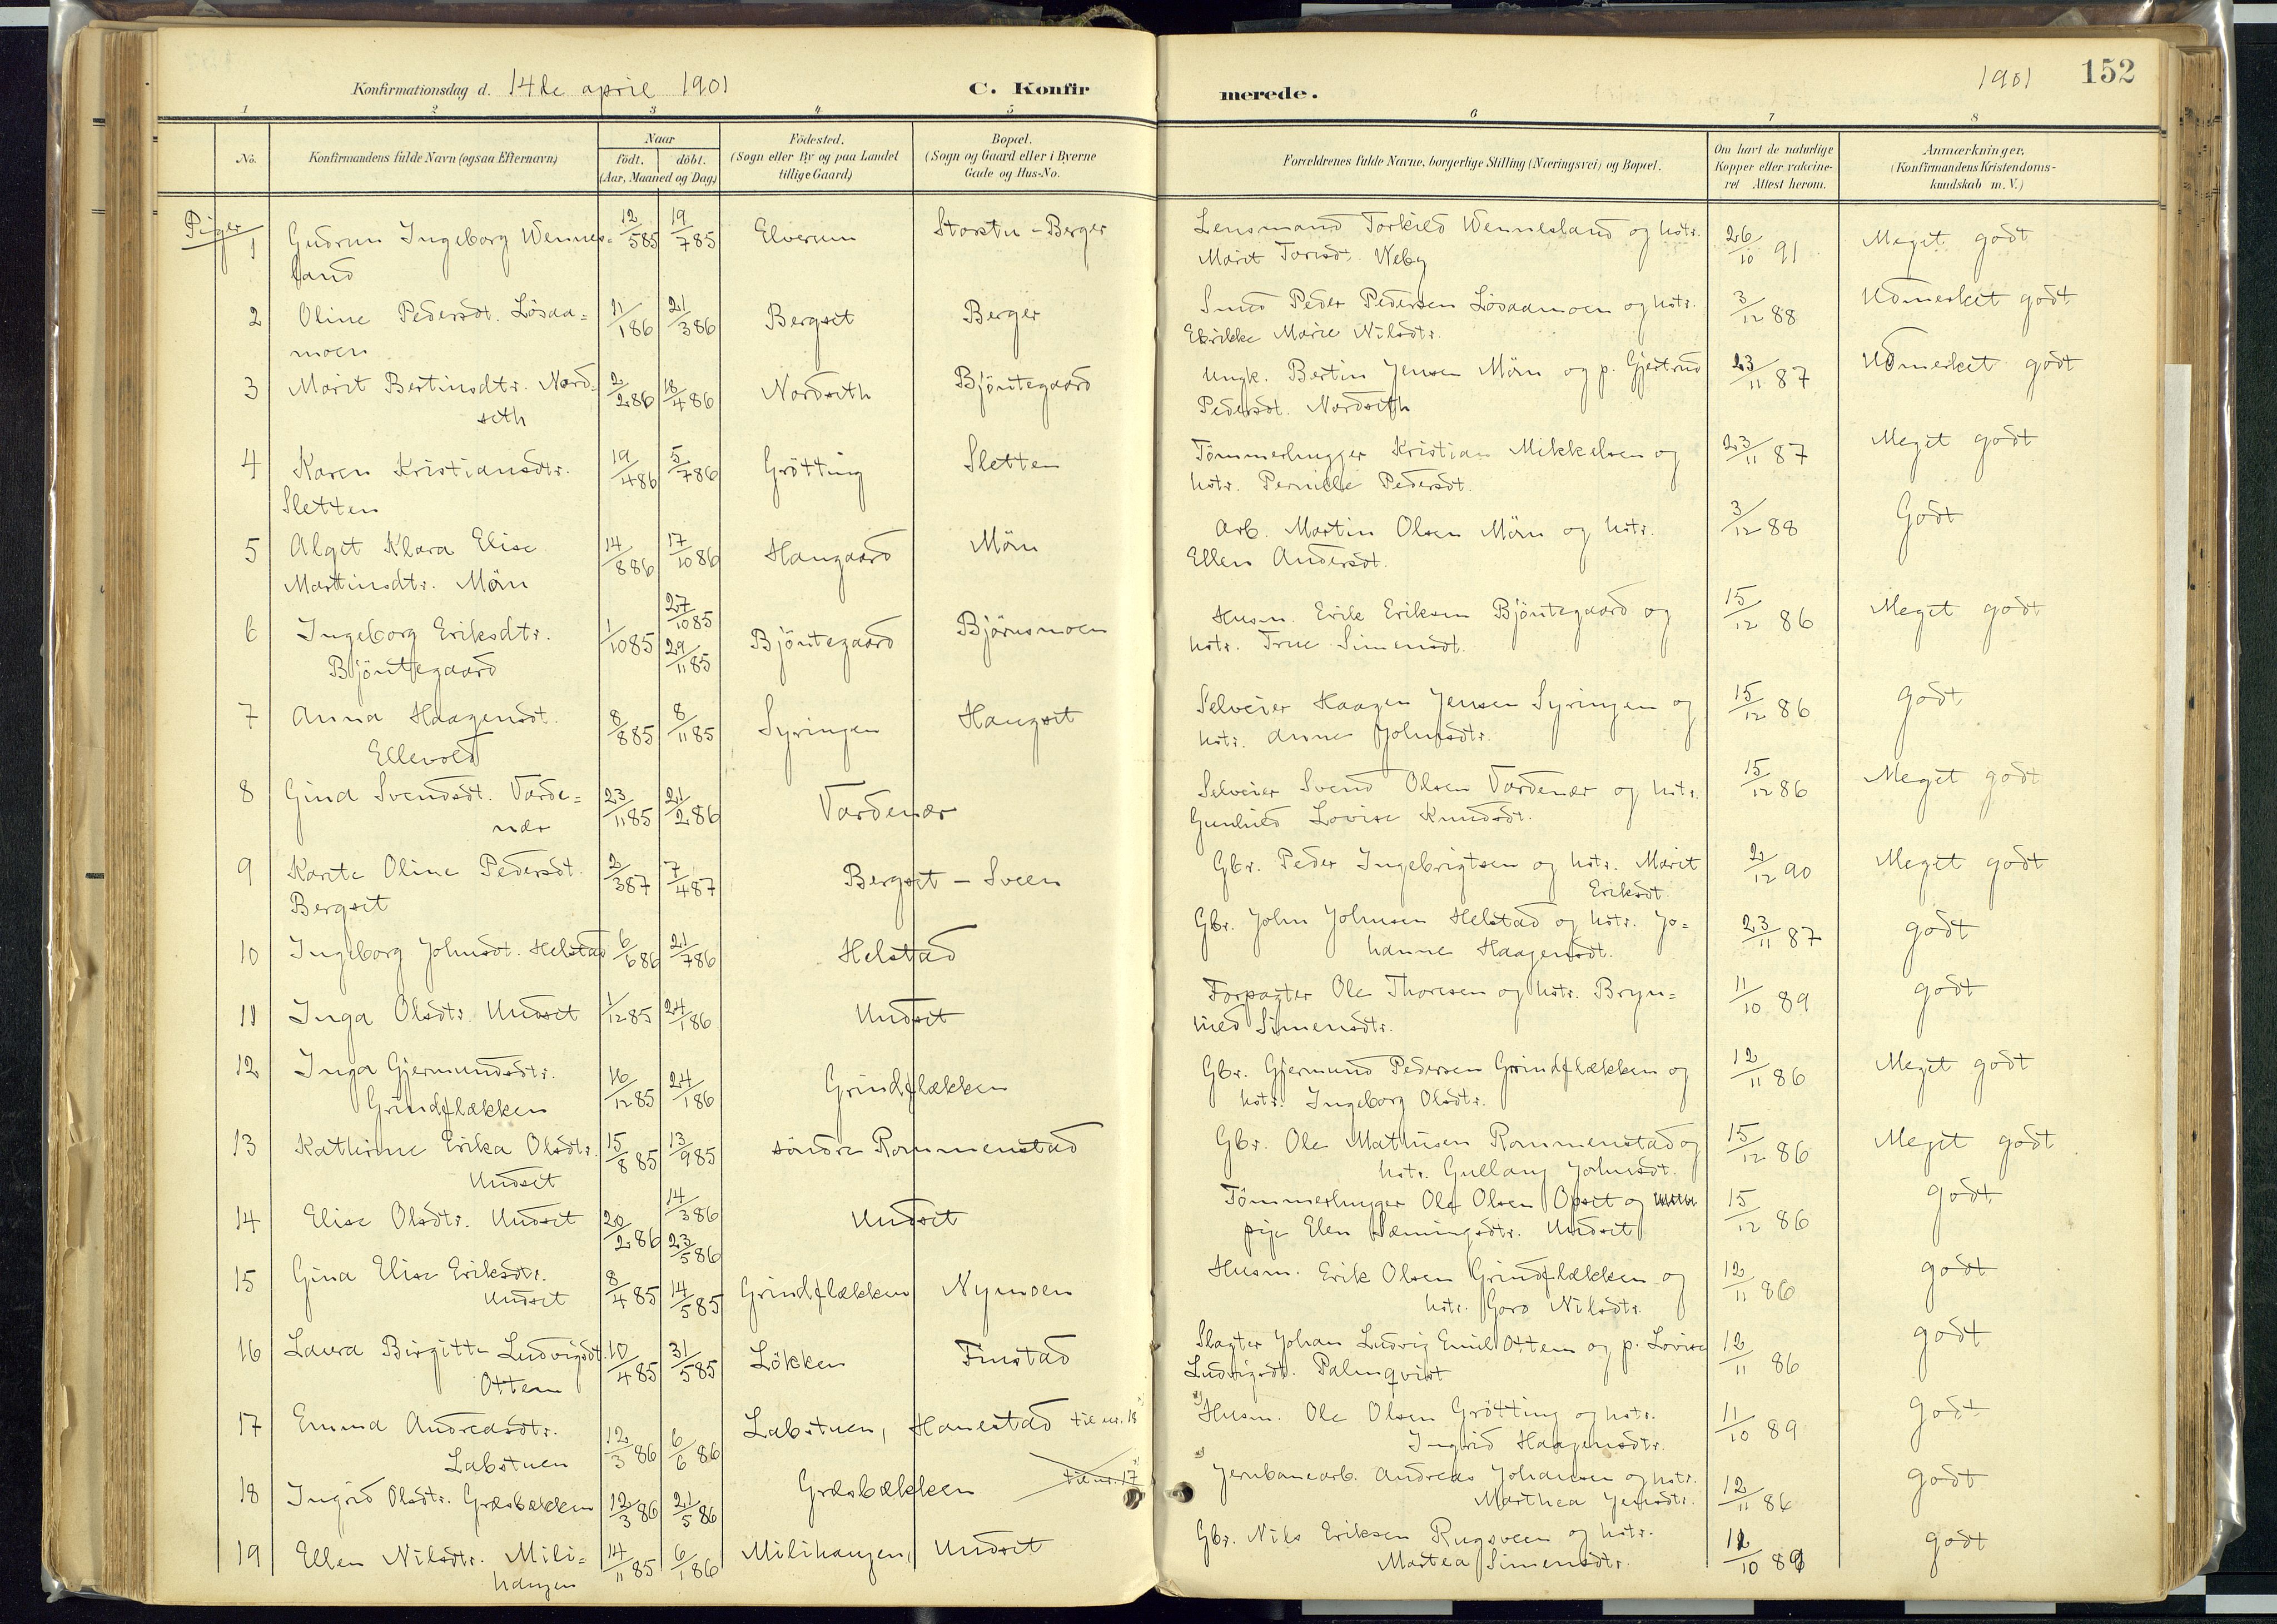 Konfirmationsdag d. 14de april 1901
C. Konfir
merede.
1901
152
1 2 3 4 5 6 7 8
No.
Konfirmandens fulde Navn (ogsaa Efternavn)
Naar
födt. döbt.
(Aar, Maaned og Dag)
Födested.
(Sogn eller By og paa Landet
tillige Gaard)
Bopæl.
(Sogn og Gaard eller i Byerne
Gade og Hus-No.
Forældrenes fulde Navne, borgerlige Stilling (Næringsvei) og Bopæl.
Om havt de naturlige
Kopper eller vakcine-
ret Attest herom.
Anmærkninger,
(Konfirmandens Kristendoms-
kundskab m. V.)
Piger
1 Gudrun Ingeborg Wennes= 12/5 85 19/7 85 Elverum Storstu - Berger Lensmand Torkild Wennesland og hstr. 26/10 91 Meget godt
land Marit Torisdt. Neby
2 Oline Pedersdt. Lösaa= 11/1 86 21/3 86 Bergset Berger Smed Peder Pedersen Lösaamoen og hstr. 3/12 88 Udmerket godt
moen Marie Nilsdtr.
3 Marit Bertinsdtr. Nord= 2/2 86 18/4 86 Nordseth Bjöntegaard Ungk. Bertin Jensen Mörn og p. Gjertrud 23/11 87 Udmerket godt
seth Pedersdt. Nordseth
4 Karen Kristiansdtr. 19/4 86 5/7 86 Grötting Sletten Tömmerhugger Kristian Mikkelsen og 23/11 87 Meget godt
Sletten hstr. Pernille Pedersdt.
5 Algit Klara Elise 14/8 86 17/10 86 Haugaard Mörn Arb. Martin Olsen Mörn og hstr. 3/12 88 Godt
Martinsdtr. Mörn Ellen Andersdt.
6 Ingeborg Eriksdtr. 1/10 85 27/10 85 Bjöntegaard Björnsmoen Husm. Erik Eriksen Bjöntegaard og 15/12 86 Meget godt
Bjöntegaard 29/11 85 hstr. True Simensdt.
7 Anna Haagensdt. 8/8 85 8/11 85 Syringen Haugset Selveier Haagen Jensen Syringen og 15/12 86 godt
Ellevold hstr. Anne Johnsdtr.
8 Gina Svendsdt. Varde= 23/11 85 21/2 86 Vardenær Selveier Svend Olsen Vardenær og hstr. 15/12 86 Meget godt
nær Gunhild Lovise Knudsdt.
9 Karete Oline Pedersdt. 2/3 87 7/4 87 Bergset - Sveen Gbr. Peder Ingebrigtsen og hstr. Marit 2/12 90 Meget godt
Bergset Eriksdt.
10 Ingeborg Johnsdt. Helstad 6/6 86 21/7 86 Helstad Gbr. John Johnsen Helstad og hstr. Jo= 23/11 87 godt
hanne Haagensdt.
11 Inga Olsdtr. Undset 1/12 85 24/1 86 Undset Forpagter Ole Thoresen og hstr. Bryn= 11/10 89 godt
hild Simensdtr.
12 Inga Gjermundsdtr. 16/12 85 24/1 86 Grindflækken Gbr. Gjermund Pedersen Grindflækken og 12/11 86 Meget godt
Grindflækken hstr. Ingeborg Olsdtr.
13 Kathrine Erika Olsdtr. 15/8 85 13/9 85 söndre Rommenstad Gbr. Ole Mathisen Rommenstad og 15/12 86 Meget godt
Undset hstr. Gullaug Johnsdt.
14 Elise Olsdtr. Undset 20/2 86 14/3 86 Undset Tömmerhugger Ole Olsen Opset og 15/12 86 godt
23/5 86 pige Elen Hemingsdtr. Undset
15 Gina Elise Eriksdtr. 8/4 85 14/5 85 Grindflækken Nymoen Husm. Erik Olsen Grindflækken og 12/11 86 godt
Undset hstr. Goro Nilsdtr.
16 Laura Birgitte Ludvigsdt. 10/4 85 31/5 85 Lökken Finstad Slagter Johan Ludvig Emil Ottem og p. Lovise 12/11 86 godt
Ottem Ludvigsdt. Palmqvist
17 Emma Andreasdtr. 12/3 86 6/6 86 Labstuen, Hanestad til nr. 18 Husm. Ole Olsen Grötting og hstr. 11/10 89 godt
Labstuen Ingrid Haagensdtr.
18 Ingrid Olsdtr. Græsbækken 12/3 86 21/5 86 Græsbækken til nr. 17 Jernbanearb. Andreas Johansen og hstr. 12/11 86 godt
Marthea Jensdtr.
19 Ellen Nilsdtr. Mili= 14/11 85 6/1 86 Milihaugen, Undset Gbr. Nils Eriksen Rugsveen og hstr. godt
haugen Martea Simensdtr.